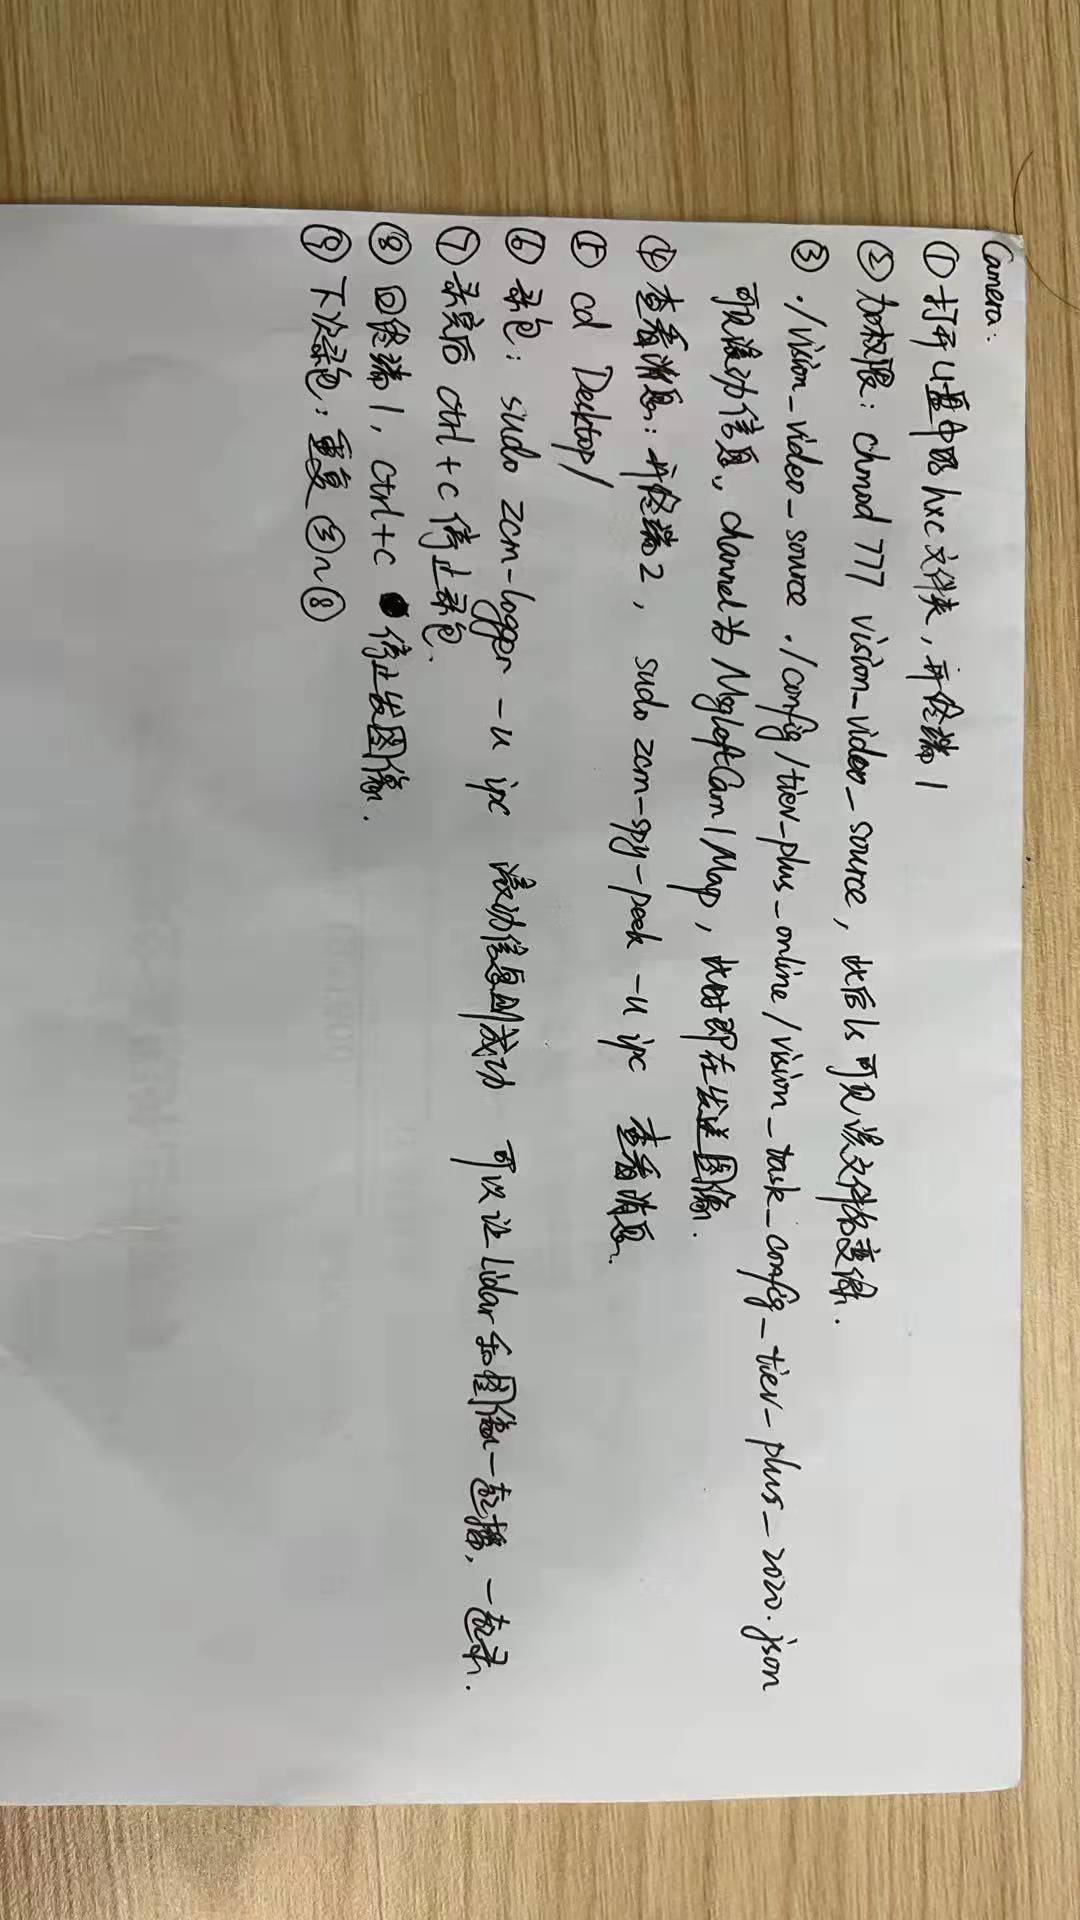 Camera:
① 打开U盘中的hxc文件夹，开终端1
② 加权限：chmod 777 vision_video_source，此后ls可见该文件名变绿.
③ ./vision_video_source ./config/tiev_plus_online/vision_task_config_tiev_plus_2020.json
可见滚动信息，channel为MsgLeftCam1Map，此时即在发送图像.
④ 查看消息：开终端2， sudo zcm-spy-peek -u ipc 查看消息.
⑤ cd Desktop/
⑥ 录包：sudo zcm-logger -u ipc 滚动信息则成功 可以让Lidar和图像一起播，一起录.
⑦ 录完后 ctrl+c 停止录包.
⑧ 回终端1，ctrl+c 停止发图像.
⑨ 下次录包：重复 ③~⑧